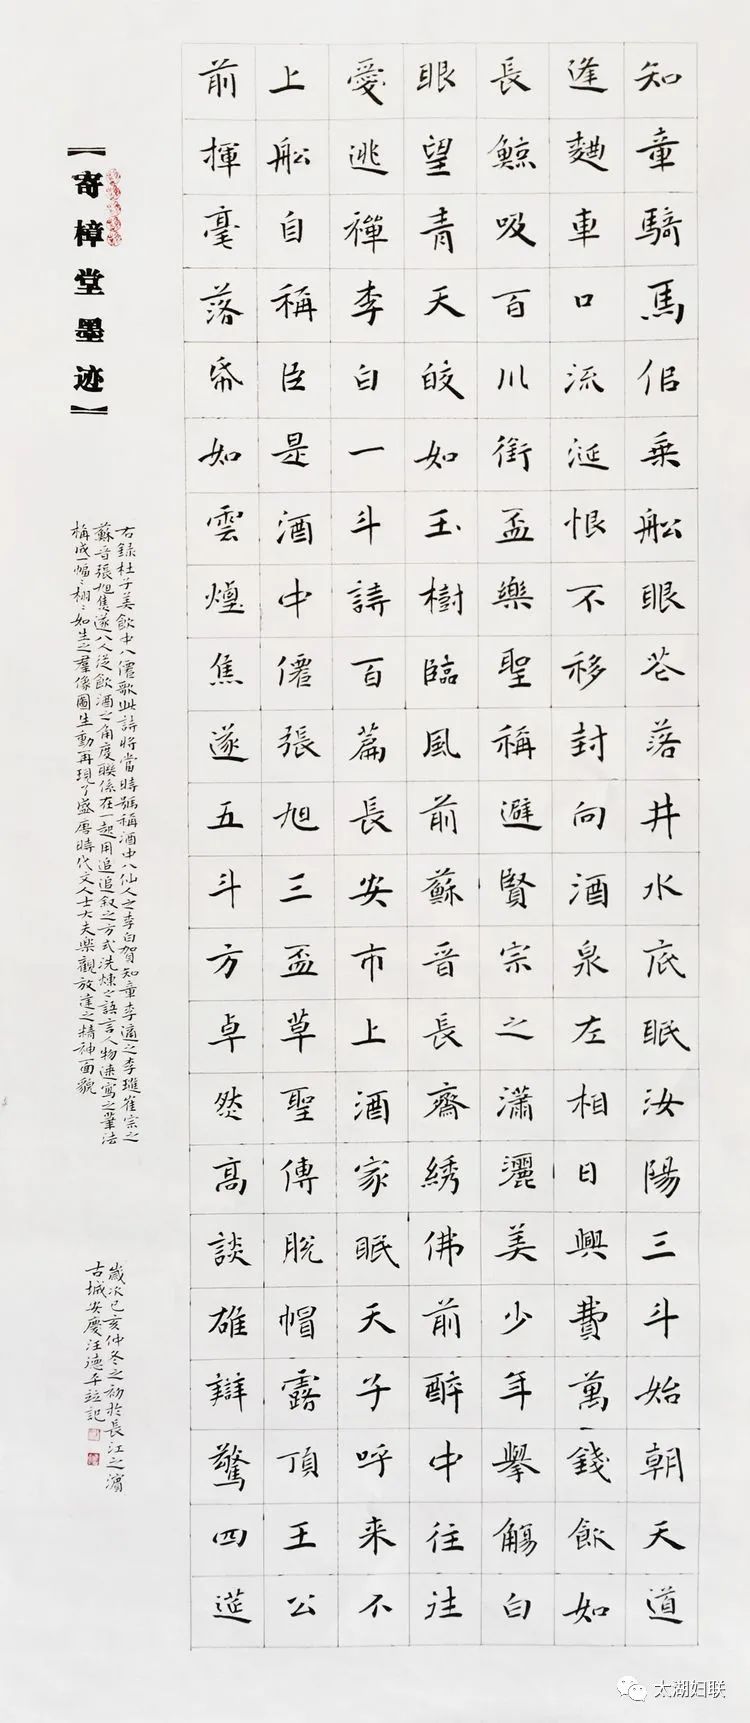 知章騎馬佀乗船眼花落井水底眠汝陽三斗始朝天道
逢麯車口流涎恨不移封向酒泉左相日興費萬錢飲如
長鯨吸百川銜盃樂聖稱避賢宗之瀟灑美少年舉觴白
眼望青天皎如玉樹臨風前蘇晉長齋綉佛前醉中往往
愛逃禪李白一斗詩百篇長安市上酒家眠天子呼来不
上船自稱臣是酒中僊張旭三盃草聖傳脫帽露頂王公
前揮毫落帋如雲煙焦遂五斗方卓然高談雄辯驚四筵
右錄杜子美飲中八僊歌此詩將當時號稱酒中八仙人之李白賀知章李適之李璡崔宗之
蘇晉張旭焦遂八人從飲酒之角度聯係在一起用追敘之方式洗煉之語言人物速寫之筆法
構成一幅栩栩如生之羣像圖生動再現了盛唐時代文人士大夫樂觀放達之精神面貌
歲次己亥仲冬之初於長江之濱
古城安慶汪德平並記
【寄樟堂墨迹】
太湖妇联